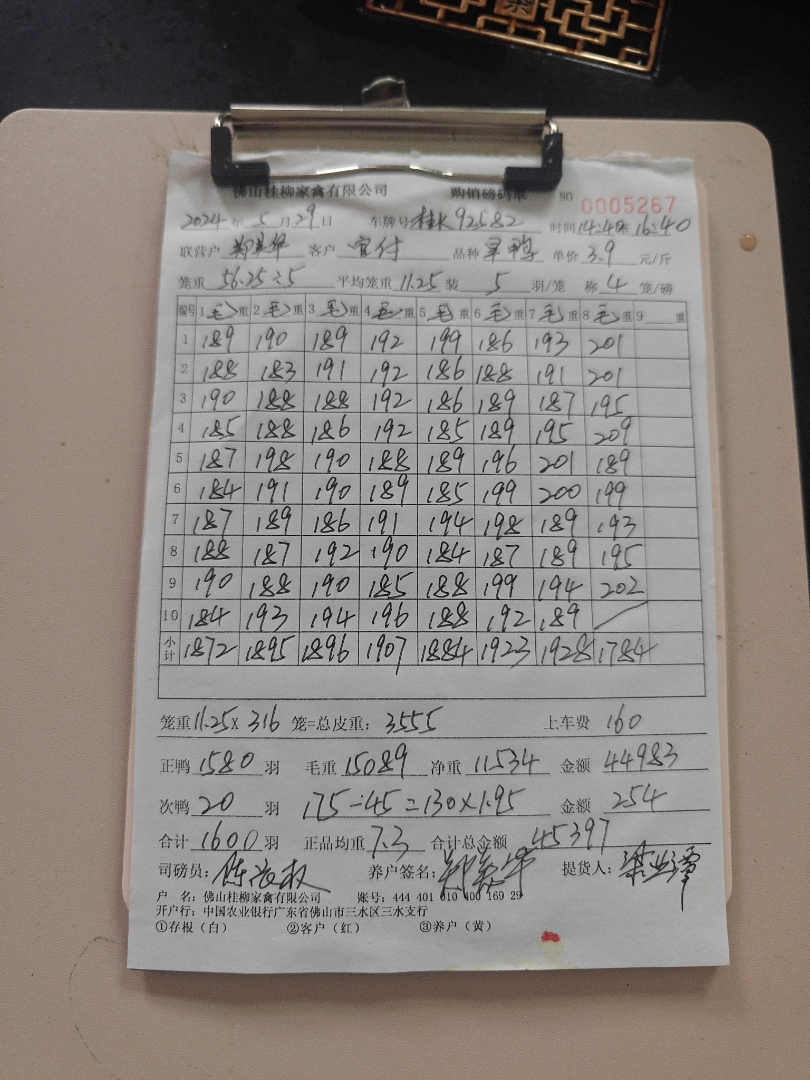 佛山桂柳家禽有限公司 购销磅码单 NO 0005267
2024年5月29日 车牌号 92582 时间14:40至16:40
联营户 客户 宜付 品种 单价 3.9 元/斤
笼重 56.25÷5 平均笼重 11.25 装 5 羽/笼 称 4 笼/磅
编号 1毛重 2毛重 3毛重 4毛重 5毛重 6毛重 7毛重 8毛重 9 重
1 189 190 189 192 199 186 193 201
2 188 183 191 192 186 188 191 201
3 190 188 188 192 186 189 187 195
4 185 188 186 192 185 189 195 209
5 187 198 190 188 189 196 201 189
6 184 191 190 189 185 199 200 199
7 187 189 186 191 194 198 189 193
8 188 187 192 190 184 187 189 195
9 190 188 190 185 188 199 194 202
10 184 193 194 196 188 192 189 /
小计 1872 1895 1896 1907 1884 1923 1928 1784
笼重 11.25 × 316 笼=总皮重: 3555 上车费 160
正鸭 1580 羽 毛重 15089 净重 11534 金额 44983
次鸭 20 羽 175-45=130×1.95 金额 254
合计 1600 羽 正品均重 7.3 合计总金额 45397
司磅员: 养户签名: 提货人:
户 名: 佛山桂柳家禽有限公司 账号: 444 401 010 400 169 29
开户行: 中国农业银行广东省佛山市三水区三水支行
①存根（白） ②客户（红） ③养户（黄）